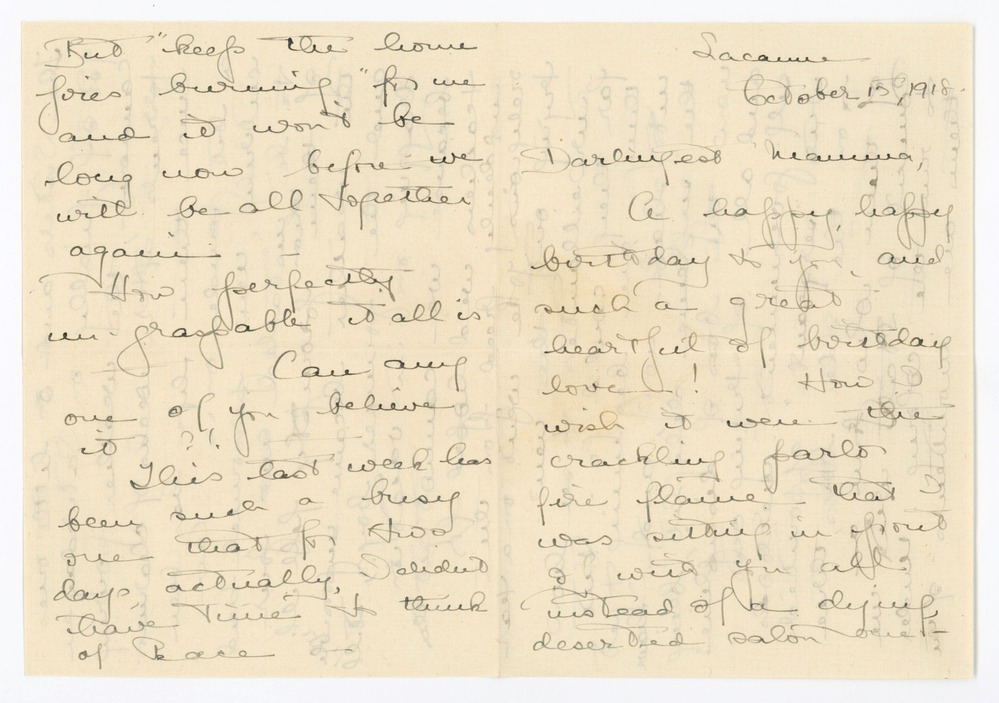 But "keep the home
fires burning" for me
and it won't be
long now before we
will be all together
again.
How perfectly
un-graspable it all is
Can any
one of you believe
it ?!
This last week has
been such a busy
one that for two
days actually, I didn't
have time to think
of Peace
Lacanau
October 15, 1918.
Darlingest Mamma,
A happy, happy
birthday to you, and
such a great
heartful of birthday
love - ! How I
wish it were the
crackling parlor
fire flame that I
was sitting in front
of with you all
instead of a dying,
deserted salon one -